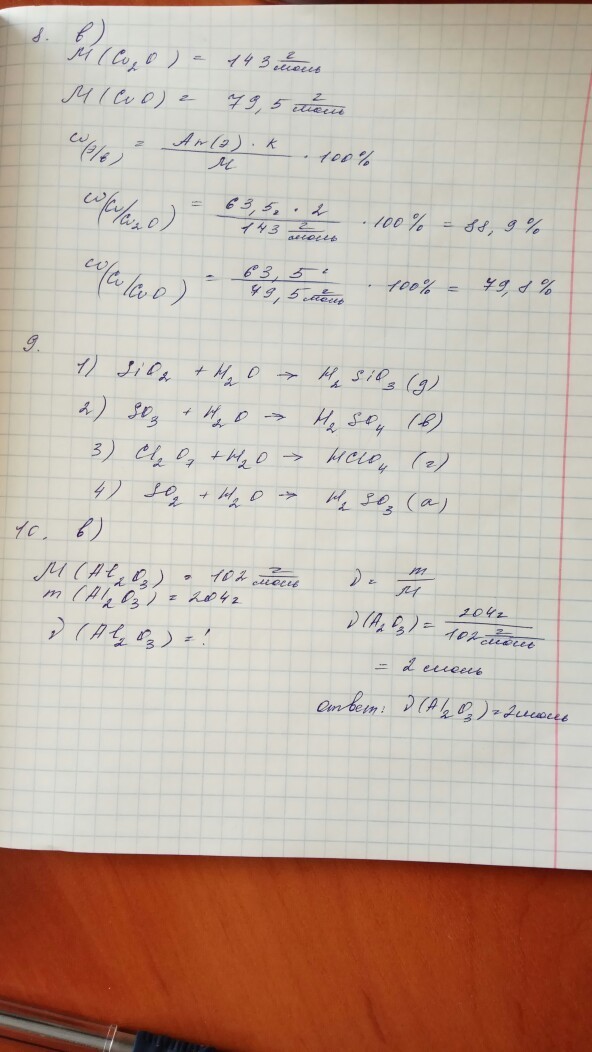 8. в)
M(Cu₂O) = 143 г/моль
M(CuO) = 79,5 г/моль
ω(э/в) = Ar(э) · к / M · 100%
ω(Cu/Cu₂O) = 63,5г · 2 / 143 г/моль · 100% = 88,9%
ω(Cu/CuO) = 63,5 · / 79,5 г/моль · 100% = 79,8%
9.
1) SiO₂ + H₂O → H₂SiO₃ (д)
2) SO₃ + H₂O → H₂SO₄ (в)
3) Cl₂O₇ + H₂O → HClO₄ (г)
4) SO₂ + H₂O → H₂SO₃ (а)
10. в)
M(Al₂O₃) = 102 г/моль
m(Al₂O₃) = 204г
ν(Al₂O₃) = ?
ν = m / M
ν(A₂O₃) = 204г / 102 г/моль
= 2 моль
ответ: ν(Al₂O₃) = 2моль